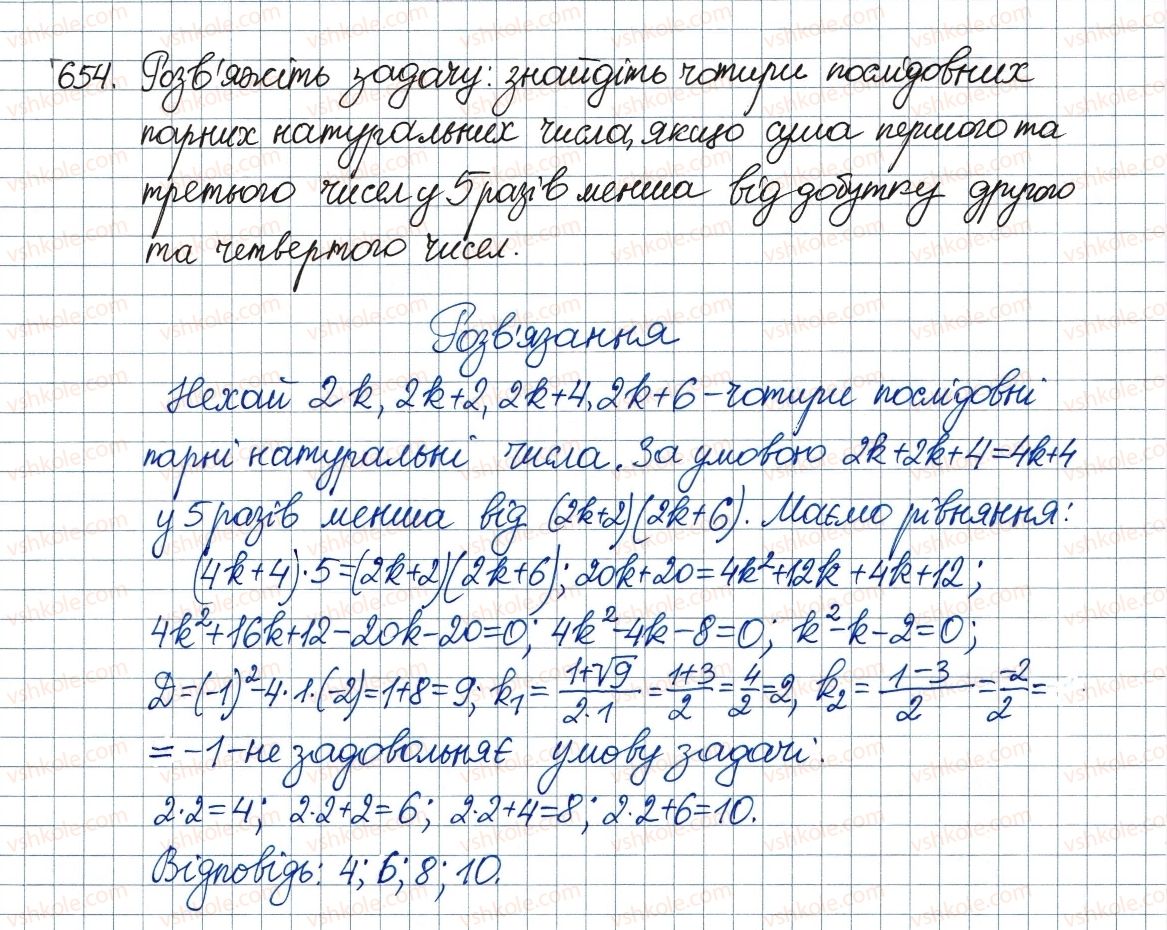 654. Розв'яжіть задачу: знайдіть чотири послідовних
парних натуральних числа, якщо сума першого та
третього чисел у 5 разів менша від добутку другого
та четвертого чисел.
Розв'язання
Нехай 2k, 2k+2, 2k+4, 2k+6 – чотири послідовні
парні натуральні числа. За умовою 2k+2k+4=4k+4
у 5 разів менша від (2k+2)(2k+6). Маємо рівняння:
(4k+4)·5=(2k+2)(2k+6); 20k+20=4k²+12k+4k+12;
4k²+16k+12-20k-20=0; 4k²-4k-8=0; k²-k-2=0;
D=(-1)²-4·1·(-2)=1+8=9; k₁=(1+√9)/(2·1)=(1+3)/2=4/2=2, k₂=(1-3)/2=-2/2=
=-1-не задовольняє умову задачі.
2·2=4; 2·2+2=6; 2·2+4=8; 2·2+6=10.
Відповідь: 4; 6; 8; 10.